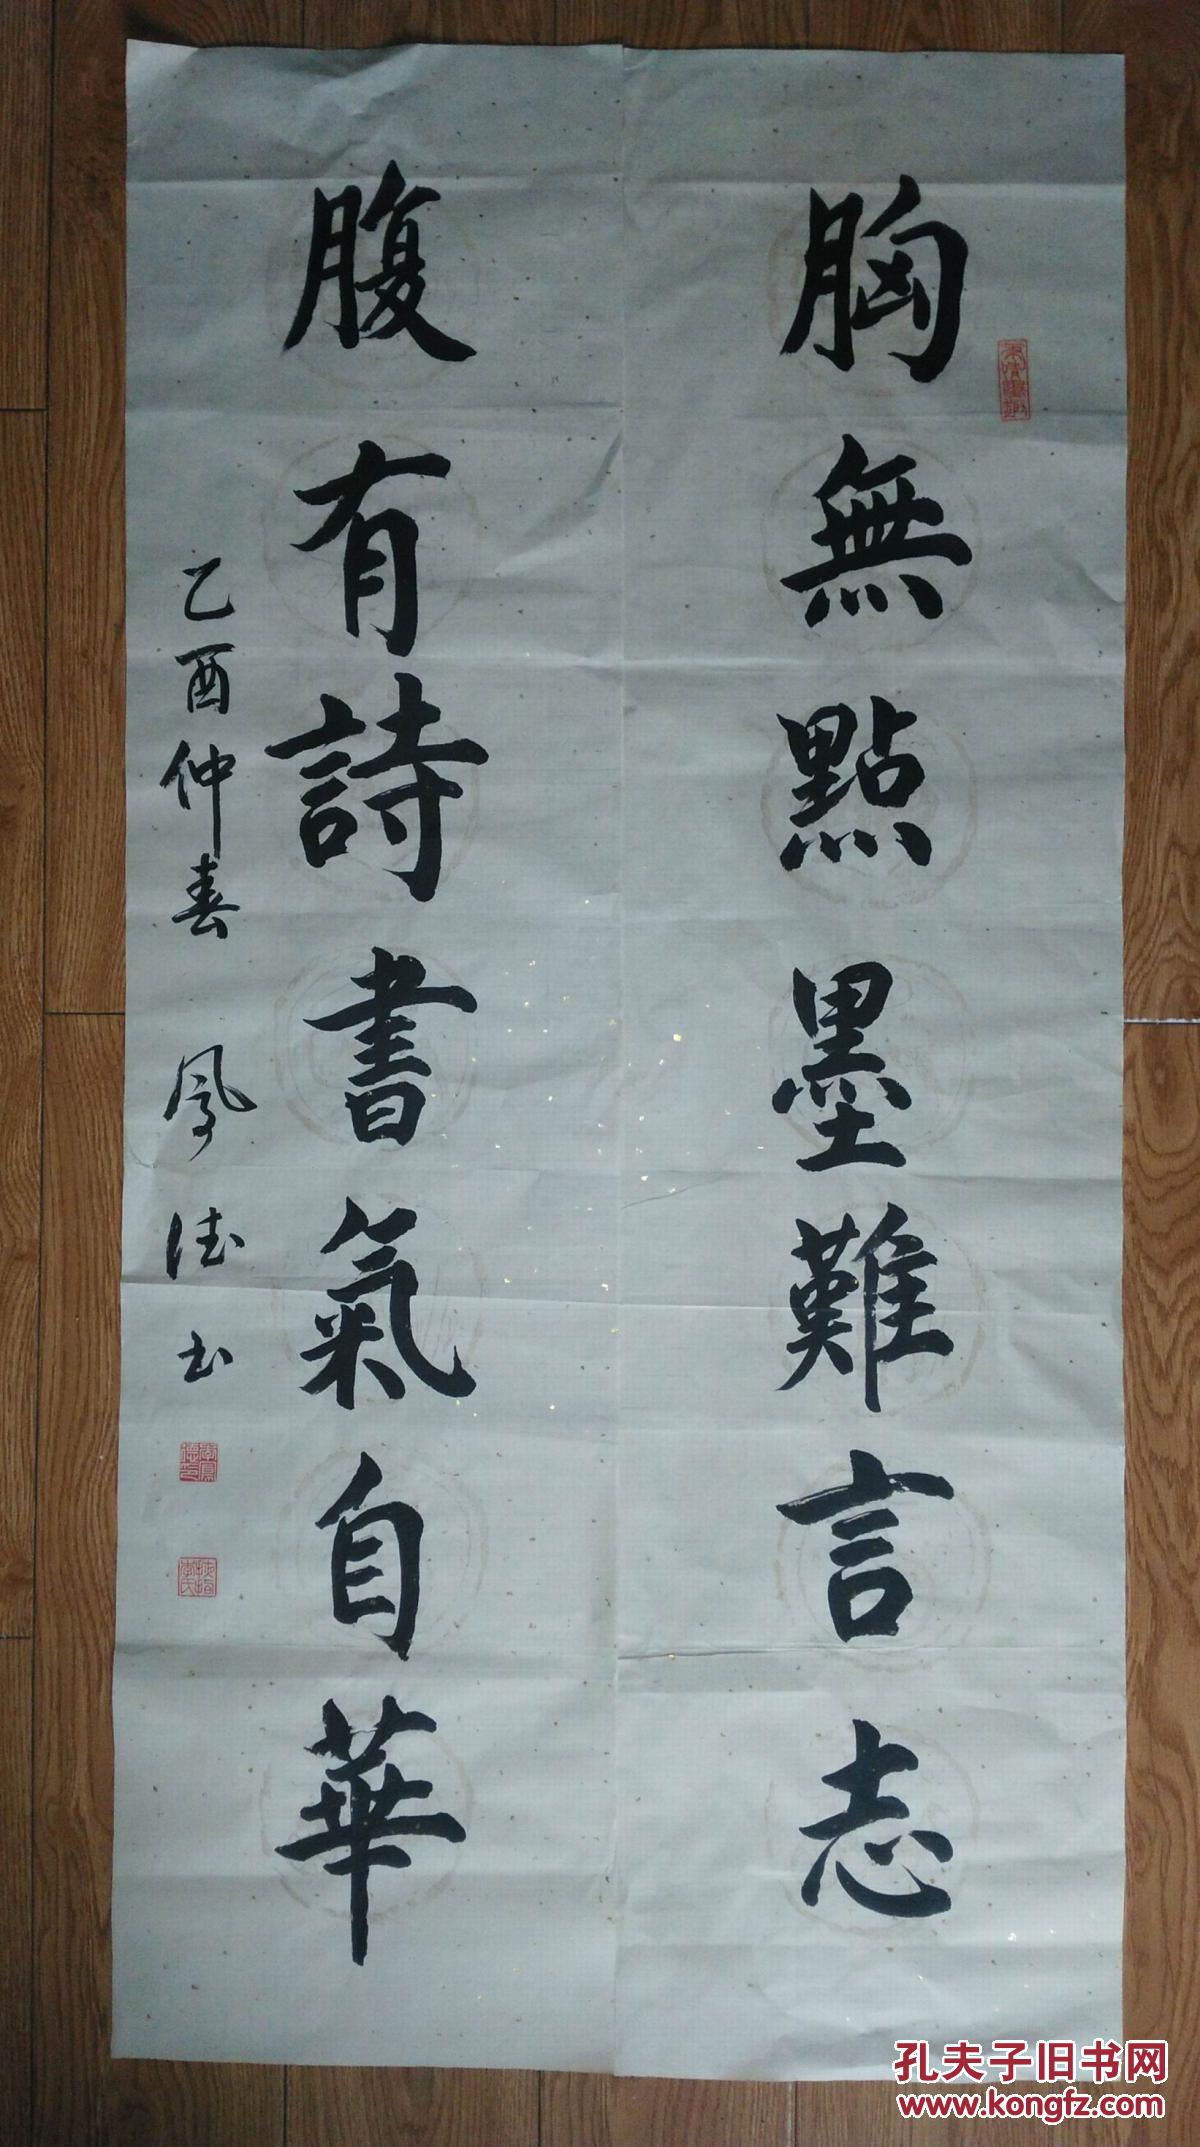 胸無點墨難言志
腹有詩書氣自華
乙酉仲春 鳳德書
李鳳德印
孔夫子旧书网
www.kongfz.com